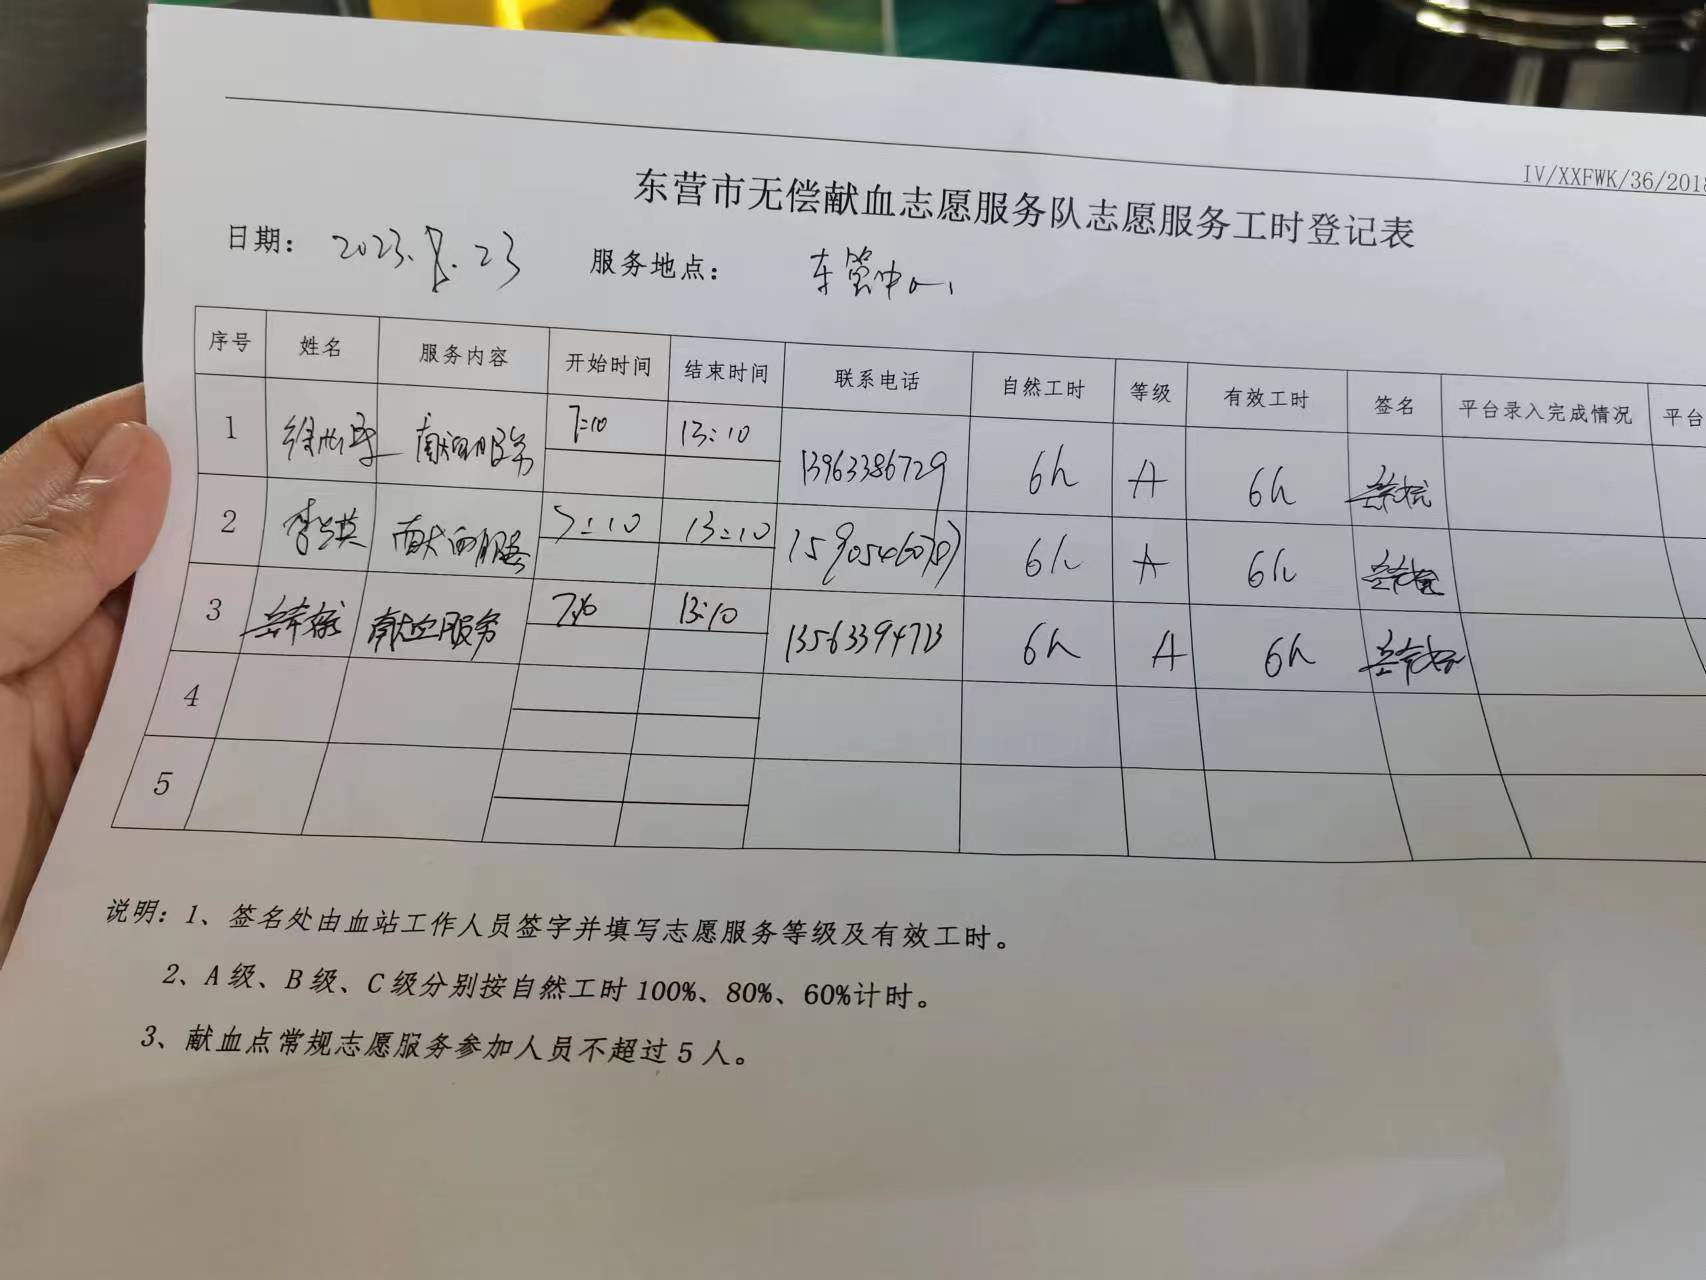 IV/XXFWK/36/2018
东营市无偿献血志愿服务队志愿服务工时登记表
日期： 2023.8.23 服务地点： 东营中心
序号 姓名 服务内容 开始时间 结束时间 联系电话 自然工时 等级 有效工时 签名 平台录入完成情况 平台
1 献血服务 7:10 13:10 13963386729 6h A 6h
2 献血服务 7:10 13:10 6h A 6h
3 献血服务 7:10 13:10 6h A 6h
4
5
说明：1、签名处由血站工作人员签字并填写志愿服务等级及有效工时。
2、A级、B级、C级分别按自然工时100%、80%、60%计时。
3、献血点常规志愿服务参加人员不超过5人。